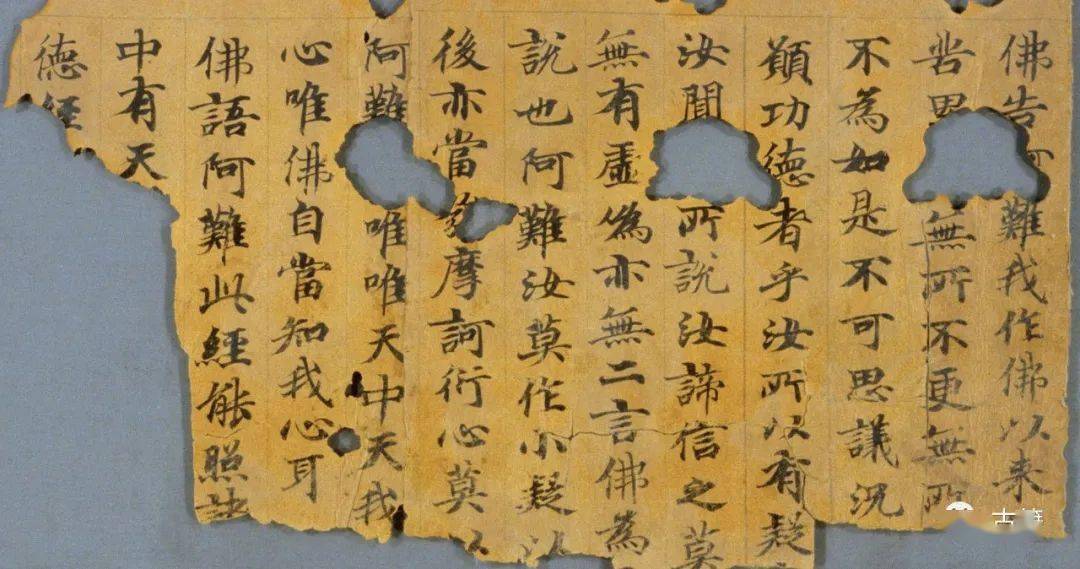 佛告阿難我作佛以来
苦無所不更無所
不為如是不可思議況
願功德者乎汝所以有疑
汝聞所說汝諦信之莫
無有虛偽亦無二言佛為
說也阿難汝莫作小疑以
後亦當發摩訶衍心莫
阿難唯唯天中天我
心唯佛自當知我心耳
佛語阿難此經能照諸
中有天
德經